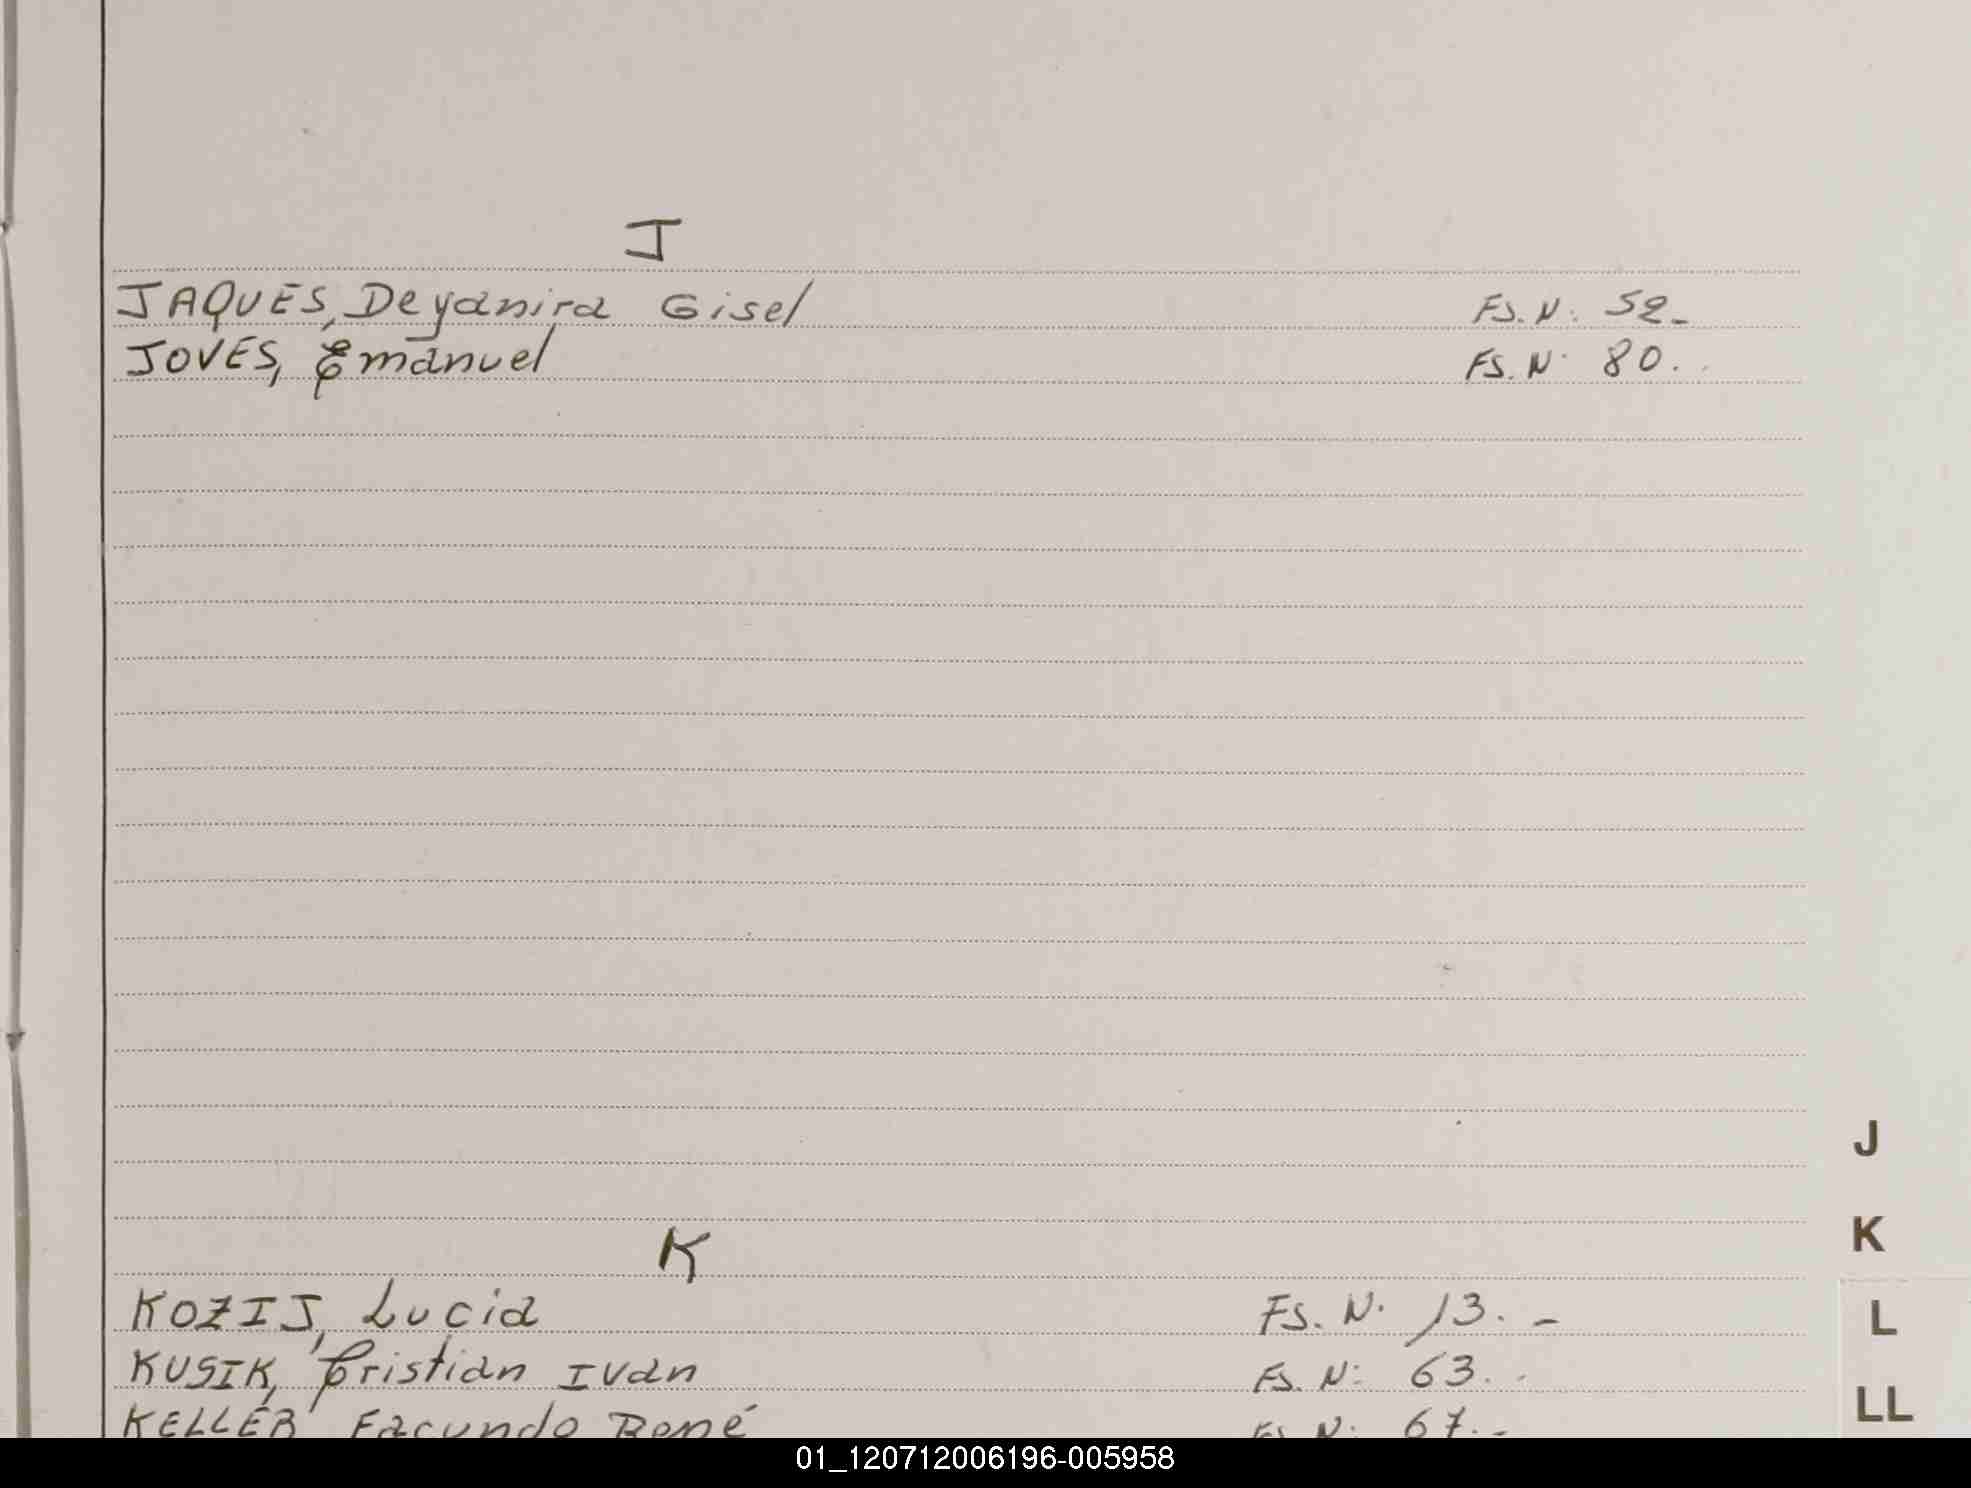 J
JAQUES, Deyanira Gisel FS. N: 52_
JOVES, Emanuel FS. N. 80.
J
K
K
KOZIJ, Lucia FS. N. 13. _
L
KUSIK, Cristian Ivan FS. N: 63.
LL
KELLER Facundo René FS N. 67._
01_120712006196-005958